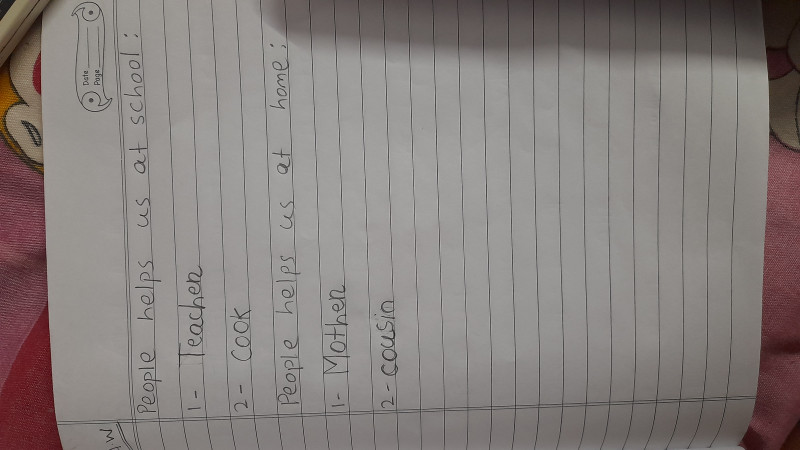 Date
Page
People helps us at school :
1- Teacher
2- Cook
People helps us at home :
1- Mother
2- cousin